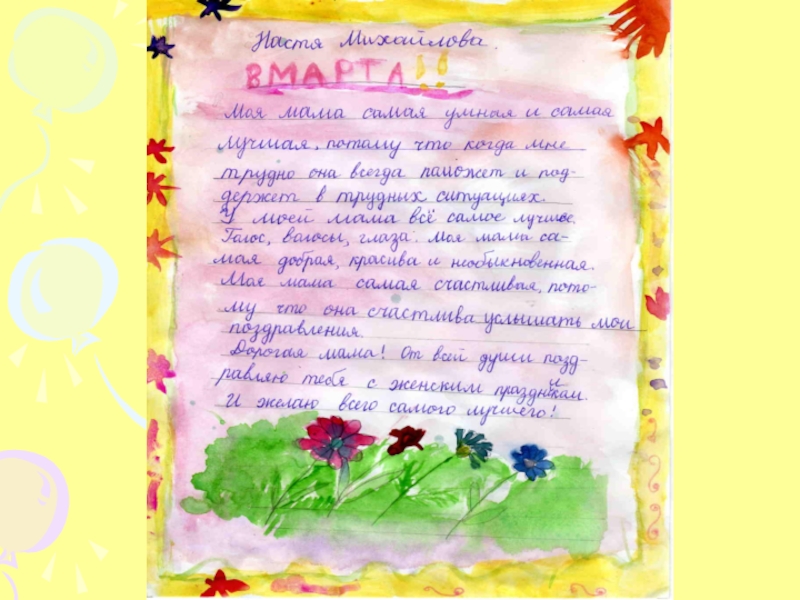 Настя Михайлова.
8 МАРТА!!
Моя мама самая умная и самая
лучшая, потому что когда мне
трудно она всегда поможет и под-
держет в трудных ситуациях.
У моей мама всё самое лучшее.
Голос, волосы, глаза. Моя мама са-
мая добрая, красива и необыкновенная.
Моя мама самая счастливая, пото-
му что она счастлива услышать мои
поздравления.
Дорогая мама! От всей души позд-
равляю тебя с женским праздником.
И желаю всего самого лучшего!